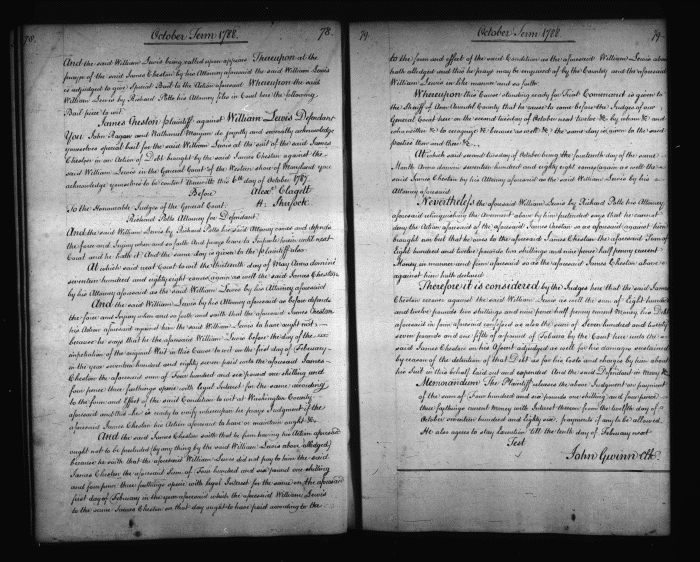 78.
October Term 1788.
78.
And the said William Lewis being called upon appears Thereupon at the
prayer of the said James Cheston by his Attorney aforesaid the said William Lewis
is adjudged to give special Bail to the Action aforesaid Whereupon the said
William Lewis by Richard Potts his Attorney files in Court here the following
Bail piece to wit
James Cheston plaintiff against William Lewis Defendant
You John Ragan and Nathaniel Morgan do jointly and severally acknowledge
yourselves special bail for the said William Lewis at the suit of the said James
Cheston in an Action of Debt brought by the said James Cheston against the
said William Lewis in the General Court of the Western shore of Maryland you
acknowledge yourselves to be content Dated this 6th day of October 1787.
Before Alexr. Clagett
To the Honourable Judges of the General Court H. Shryock
Richard Potts Attorney for Defendant
And the said William Lewis by Richard Potts his said Attorney comes and defends
the force and Injury when and so forth And prays leave to Imparle herein until next
Court and he hath it And the same day is given to the plaintiff also
At which said next Court to wit the thirteenth day of May Anno domini
seventeen hundred and eighty eight comes again as well the said James Cheston
by his Attorney aforesaid as the said William Lewis by his Attorney aforesaid
And the said William Lewis by his Attorney aforesaid as before defends
the force and Injury when and so forth and saith that the aforesaid James Cheston
his Action aforesaid against him the said William Lewis to have ought not
because he says that he the aforesaid William Lewis before the day of the
impetration of the original Writ in this Cause to wit on the first day of February
in the year seventeen hundred and eighty seven paid unto the aforesaid James
Cheston the aforesaid sum of Four hundred and six pound one shilling and
four pence three farthings specie with legal Interest for the same according
to the form and Effect of the said Condition to wit at Washington County
aforesaid and this he is ready to verify whereupon he prays Judgment if the
aforesaid James Cheston his Action aforesaid to have or maintain ought &c
And the said James Cheston saith that he from having his Action aforesaid
ought not to be precluded by any thing by the said William Lewis above alledged
because he saith that the aforesaid William Lewis did not pay to him the said
James Cheston the aforesaid Sum of Four hundred and six pound one shilling
and four pence three farthings specie with legal Interest for the same on the aforesaid
first day of February in the year aforesaid which the aforesaid William Lewis
to the same James Cheston on that day ought to have paid according to the
79.
October Term 1788.
79.
to the form and effect of the said Condition as the aforesaid William Lewis above
hath alledged and this he prays may be enquired of by the Country and the aforesaid
William Lewis in like manner and so forth
Whereupon this Cause standing ready for Trial Command is given to
the Sheriff of Ann Arundel County that he cause to come before the Judges of our
General Court here on the second tuesday of October next twelve &c by whom &c and
who neither &c to recognize &c because as well &c the same day is given to the said
parties then and there &c
At which said second tuesday of October being the fourteenth day of the same
Month Anno domini seventeen hundred and eighty eight comes again as well the
said James Cheston by his Attorney aforesaid as the said William Lewis by his
Attorney aforesaid
Nevertheless the aforesaid William Lewis by Richard Potts his Attorney
aforesaid relinquishing the Averment above by him pretended says that he cannot
deny the Action aforesaid of the aforesaid James Cheston as aforesaid against him
brought nor but that he owes to the aforesaid James Cheston the aforesaid Sum of
Eight hundred and twelve pounds two shillings and nine pence half penny current
Money in manner and form aforesaid as the aforesaid James Cheston above
against him hath declared
Therefore it is considered by the Judges here that the said James
Cheston recover against the said William Lewis as well the sum of Eight hundred
and twelve pounds two shillings and nine pence half penny current Money his Debt
aforesaid in form aforesaid confessed as also the sum of Seven hundred and twenty
seven pounds and one fifth of a pound of Tobacco by the Court here unto the
said James Cheston on his Assent adjudged as well for his damages sustained
by reason of the detention of that Debt as for his Costs and charges by him about
his Suit in this behalf laid out and expended And the said Defendant in mercy &c
Memorandum The Plaintiff releases the above Judgment on payment
of the sum of Four hundred and six pounds one shilling and four pence
three farthings current Money with Interest thereon from the twelfth day of
October seventeen hundred and eighty six, payments if any to be allowed.
He also agrees to stay Execution 'till the tenth day of February next
Test
John Gwinn Clk